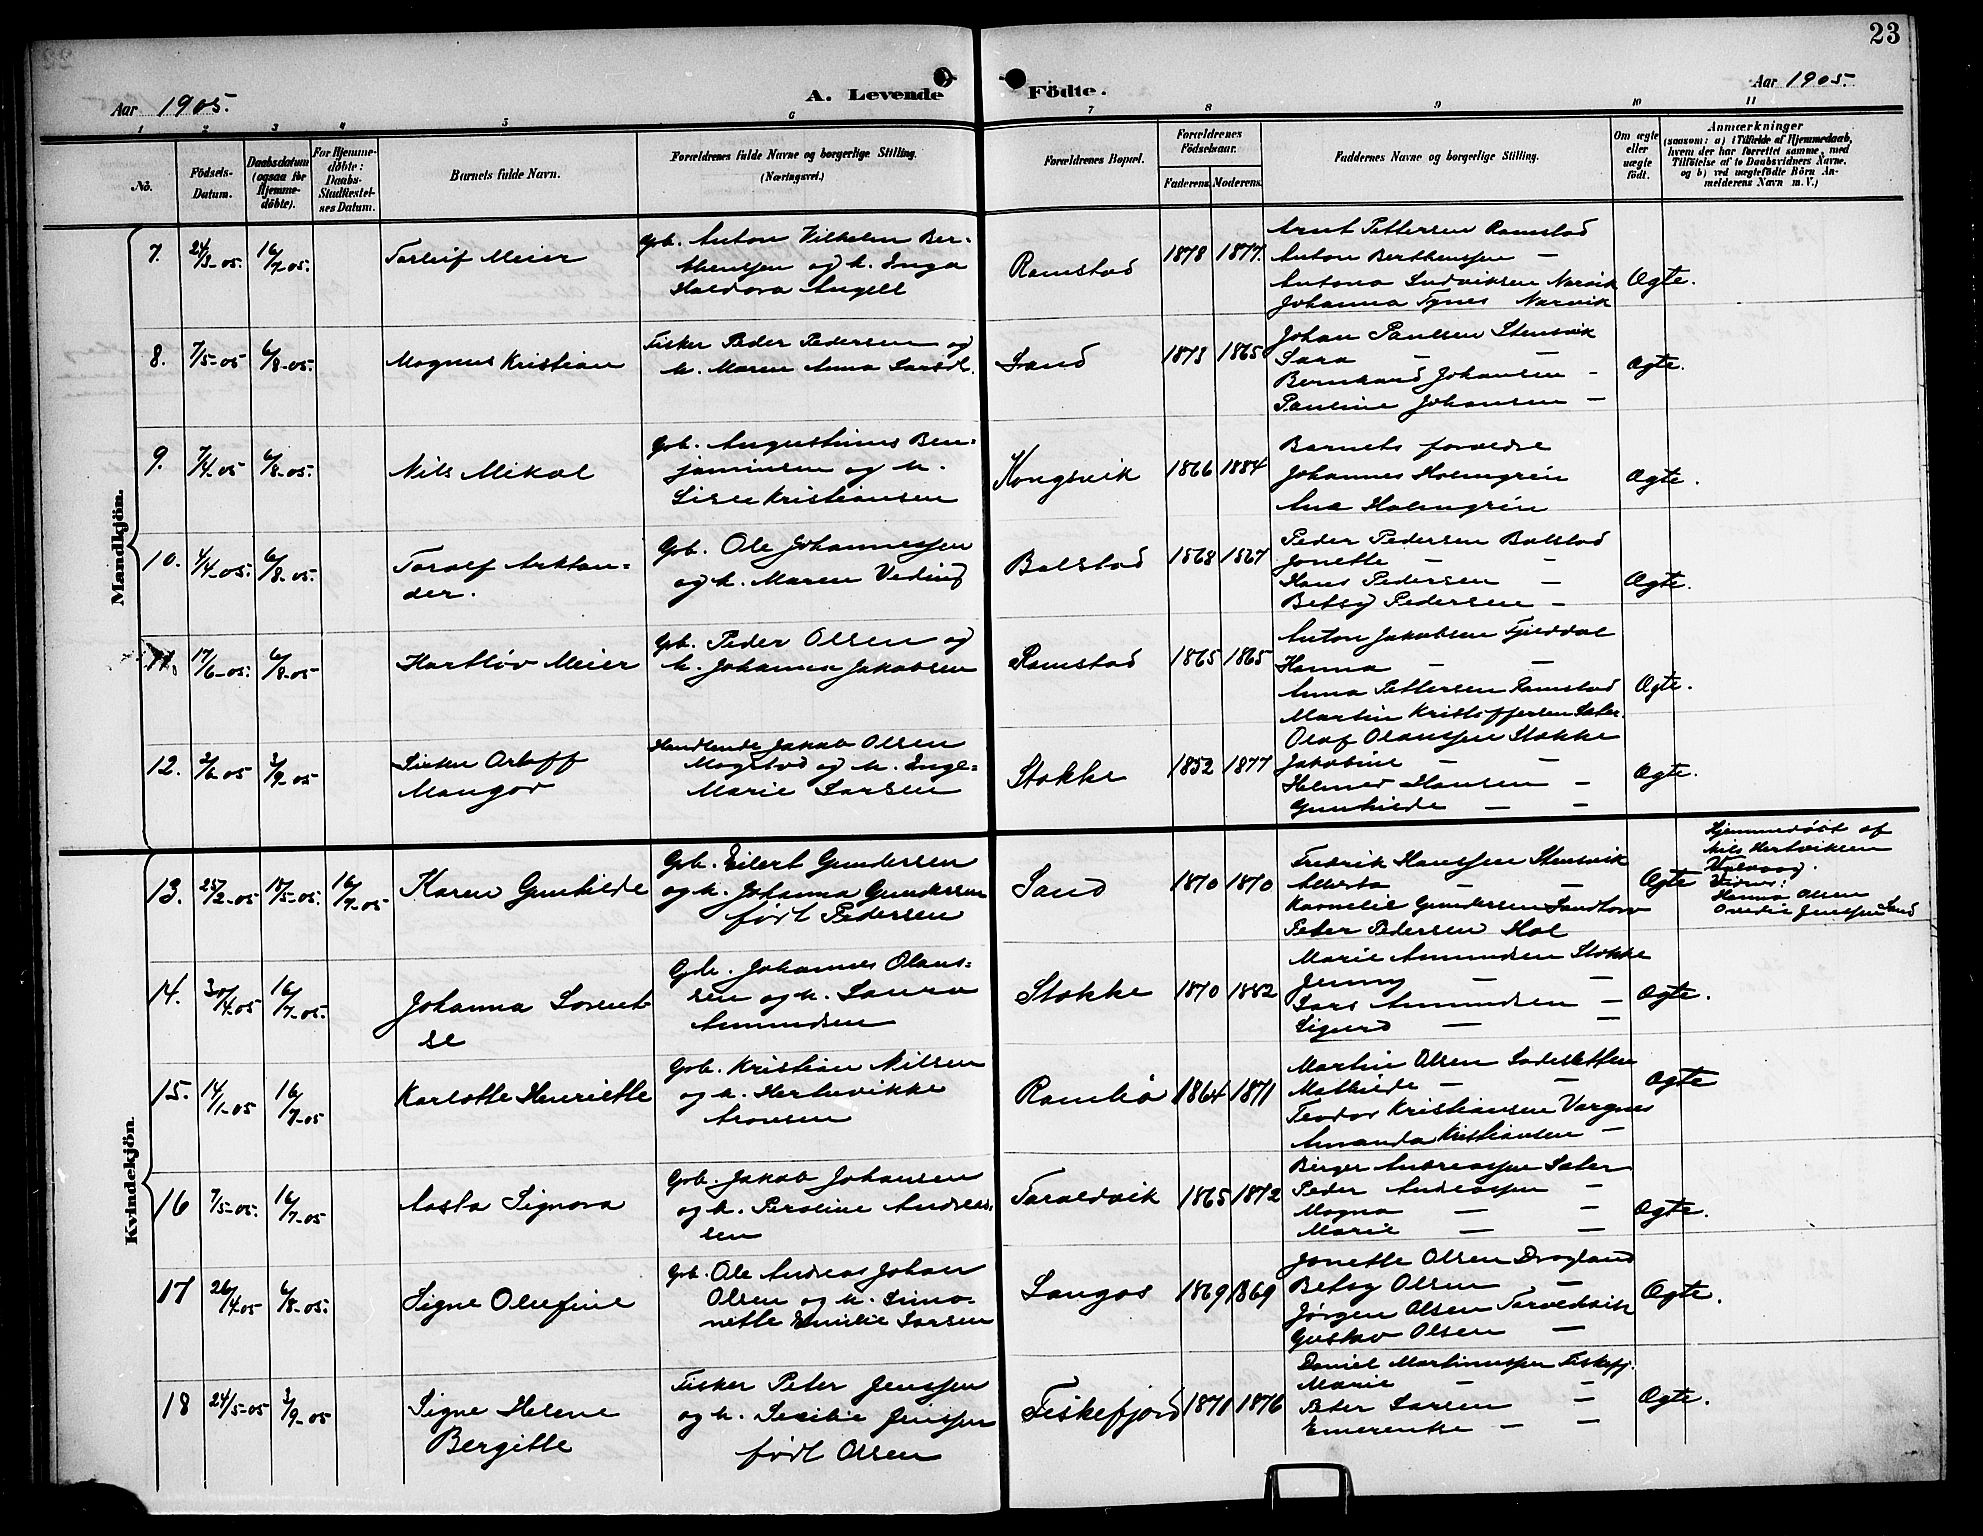 23
Aar 1905.
A. Levende Födte.
Aar 1905.
1 2 3 4 5 6 7 8 9 10 11
No.
Födsels-Datum.
Daabsdatum (ogsaa for Hjemme-döbte).
For Hjemme-döbte: Daabs-Stadfæstel-ses Datum.
Barnets fulde Navn.
Forældrenes fulde Navne og borgerlige Stilling.
(Næringsvei.)
Forældrenes Bopæl.
Forældrenes Födselsaar.
Faderens. Moderens.
Faddernes Navne og borgerlige Stilling.
Om ægte eller uægte födt.
Anmærkninger
(saasom: a) i Tilfælde af Hjemmedaab, hvem der har forrettet samme, med Tilföielse af to Daabsvidners Navne, og b) ved uægtefödte Börn Anmelderens Navn m. V.)
Mandkjön.
7. 24/3-05. 16/7-05. Torleif Meier
Gb. Anton Vilhelm Ber-
thenssen og h. Inga
Haldora Angell
Ramstad 1878 1877
Arnt Pettersen Ramstad
Anton Berthenssen —
Antona Ludviksen Narvik
Johanna Tynes Narvik
Ægte.
8. 7/5-05 6/8-05. Magnus Kristian
Fisker Peder Pedersen og
h. Maren Anna Larsd.
Sand 1873 1865
Johan Paulsen Stensvik
Sara — —
Bernhard Johansen —
Pauline Johansen —
Ægte.
9. 7/4-05 6/8-05. Nils Mikal
Gb. Augustinus Ben-
jaminsen og h.
Lise Kristiansen
Kongsvik 1866 1884
Barnets forældre
Johannes Holmgrén
Ana Holmgrén
Ægte.
10. 4/4-05. 6/8-05. Toralf Arktan-
der.
Gb. Ole Johannessen
og h. Maren Veding
Balstad 1868 1867
Peder Pedersen Balstad
Jonette — —
Hans Pedersen —
Betsy Pedersen —
Ægte.
11. 17/6-05. 6/8-05 Hartløv Meier
Gb. Peder Olsen og
h. Johanna Jakobsen
Ramstad 1865 1865
Anton Jakobsen Fjelddal
Hanna — —
Anna Pettersen Ramstad
Martin Kristoffersen Sater.
Ægte.
12. 2/6-05 3/9-05
Mangor
Handlende Jakob Olsen
Magstad og h. Inge-
Marie Larsen
Stokke 1852 1877
Olaf Olaussen Stokke
Jakobine — —
Helmer Hansen —
Gunhilde — —
Ægte.
Kvindekjön.
13. 25/2-05 15/5-05. 16/7-05 Karen Gunhilde
Gb. Eilert Gundersen
og h. Johanna Gundersen
født Pedersen
Sand 1870 1870
Fredrik Hanssen Stensvik
Alberta — —
Kornelie Gundersen Sandtorv
Peter Pedersen Hol
Ægte
Hjemmedøbt af
Nils Hertviksen
Vidner:
Hanna Olsen
Ovedie Jenssen Sand
14. 30/4-05 16/7-05. Johanna Lorent-
se
Gb. Johannes Olaus-
sen og h. Laura
Amundsen
Stokke 1870 1882
Marie Amundsen Stokke
Jenny — —
Lars Amundsen —
Sigurd — —
Ægte.
15. 14/1-05 16/7-05 Karlotte Henriette
Gb. Kristian Nilsen
og h. Hertevikke
Aronsen
Rambø 1864 1871
Martin Olsen Ladesletten
Mathilde — —
Teodor Kristiansen Vargnes
Amanda Kristiansen —
Ægte
16 7/5-05. 16/7-05 Aasta Signora
Gb. Jakob Johansen
og h. Peroline Andreas-
sen
Taraldvik 1865 1872
Birger Andreassen Sater
Peder Andreassen —
Magna — —
Marie — —
Ægte.
17 26/4-05 6/8-05. Signe Olufine
Gb. Ole Andreas Johan
Olsen og h. Simo-
nette Emilie Larsen
Sangas 1869 1869
Jonette Olsen Dragland
Betsy Olsen —
Jørgen Olsen Taraldvik
Gustav Olsen —
Ægte.
18 24/5-05 3/9-05 Signe Helene
Bergitte
Fisker Peter Jenssen
og h. Secilie Jenssen
født Olsen
Fiskefjord 1871 1876
Daniel Martinussen Fiskefj.
Marie — —
Peter Larsen —
Emerentse — —
Ægte.